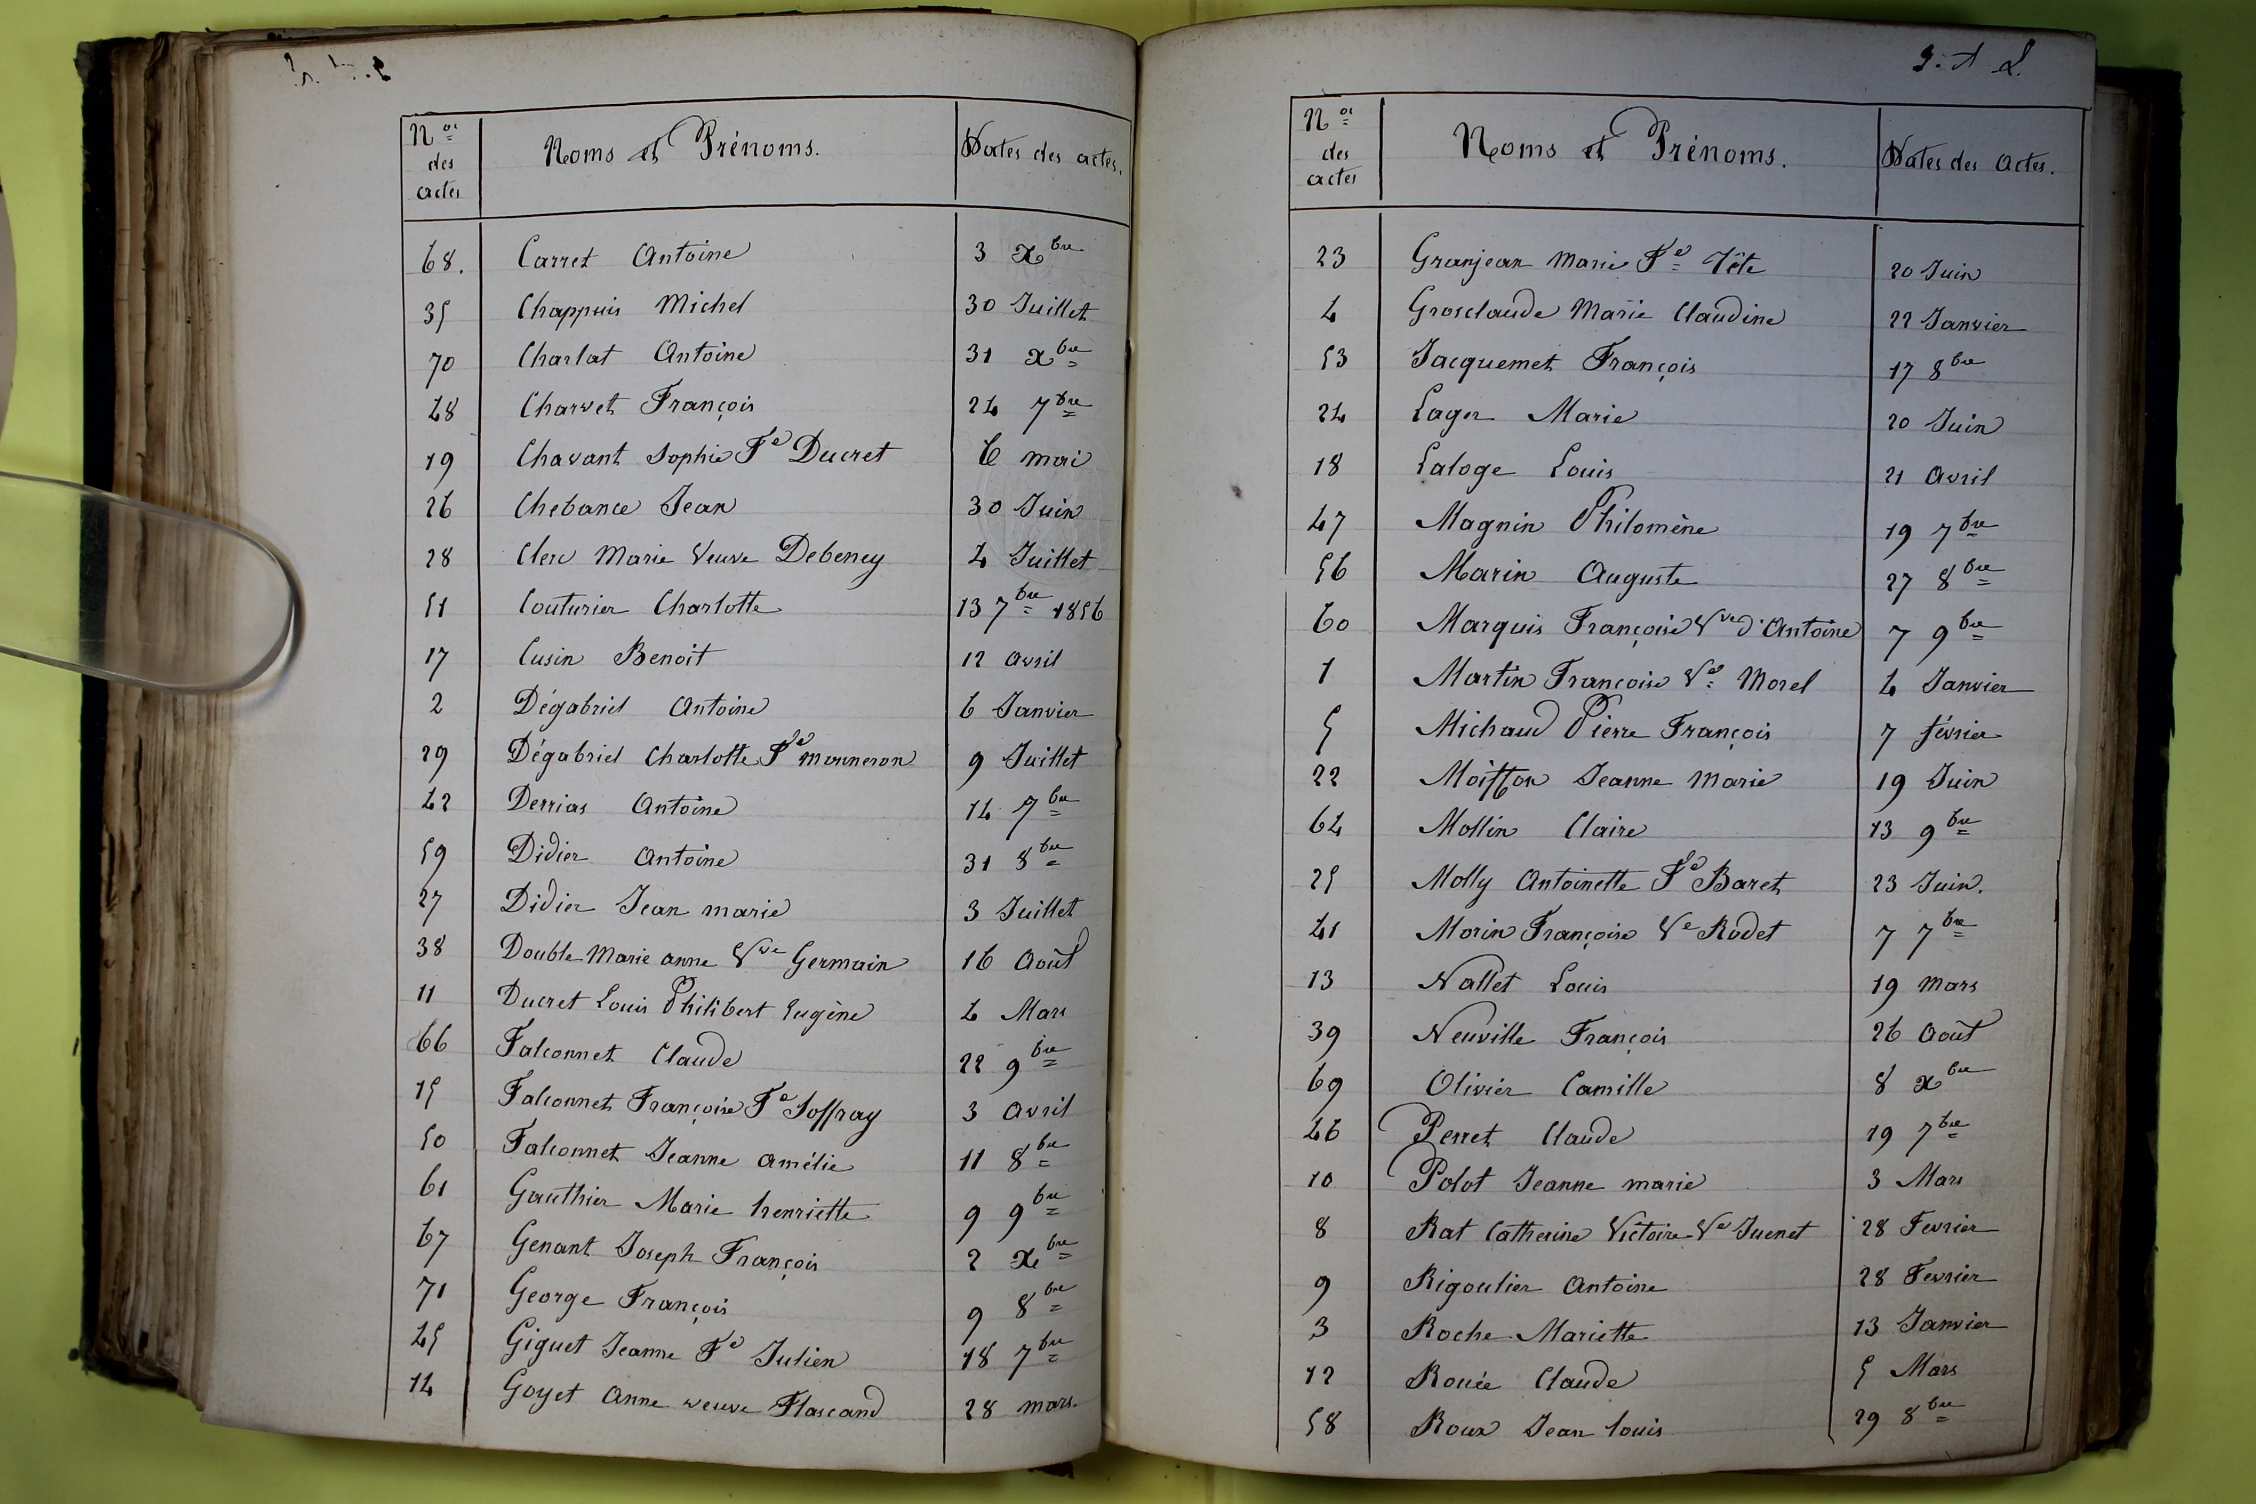 Nos des actes Noms et Prénoms. Dates des actes.
68. Carret Antoine 3 Xbre
35 Chappuis Michel 30 Juillet
70 Charlat Antoine 31 Xbre
48 Charvet François 24 7bre
19 Chavant Sophie Fe Ducret 6 mai
26 Chebance Jean 30 Juin
28 Clerc Marie Veuve Debeney 4 Juillet
51 Couturier Charlotte 13 7bre 1856
17 Cusin Benoit 12 avril
2 Dégabriel Antoine 6 Janvier
29 Dégabriel Charlotte Fe monneron 9 Juillet
42 Derrias Antoine 14 7bre
59 Didier Antoine 31 8bre
27 Didier Jean marie 3 Juillet
38 Double Marie anne Vve Germain 16 Août
11 Ducret Louis Philibert Eugène 4 Mars
66 Falconnet Claude 22 9bre
15 Falconnet Françoise Fe Joffray 3 avril
50 Falconnet Jeanne amélie 11 8bre
61 Gauthier Marie henriette 9 9bre
67 Genant Joseph François 2 Xbre
71 George François 9 8bre
45 Giguet Jeanne Fe Julien 18 7bre
14 Goyet Anne veuve Flascand 28 mars.
Nos des actes Noms et Prénoms. Dates des Actes.
23 Granjean Marie Fe Tête 20 Juin
4 Grosclaude Marie Claudine 22 Janvier
53 Jacquemet François 17 8bre
24 Lager Marie 20 Juin
18 Laloge Louis 21 Avril
47 Magnin Philomène 19 7bre
56 Marin Auguste 27 8bre
60 Marquis Françoise Vve d'Antoine 7 9bre
1 Martin Françoise Ve Morel 4 Janvier
5 Michaud Pierre François 7 février
22 Moisson Jeanne Marie 19 Juin
64 Mollin Claire 13 9bre
25 Molly Antoinette Fe Baret 23 Juin.
41 Morin Françoise Ve Rodet 7 7bre
13 Nallet Louis 19 Mars
39 Neuville François 26 Août
69 Olivier Camille 8 Xbre
46 Perret Claude 19 7bre
10 Polot Jeanne marie 3 Mars
8 Rat Catherine Victoire Ve Juenet 28 Fevrier
9 Rigoulier Antoine 28 Fevrier
3 Roche Mariette 13 Janvier
12 Rouée Claude 5 Mars
58 Roux Jean louis 29 8bre